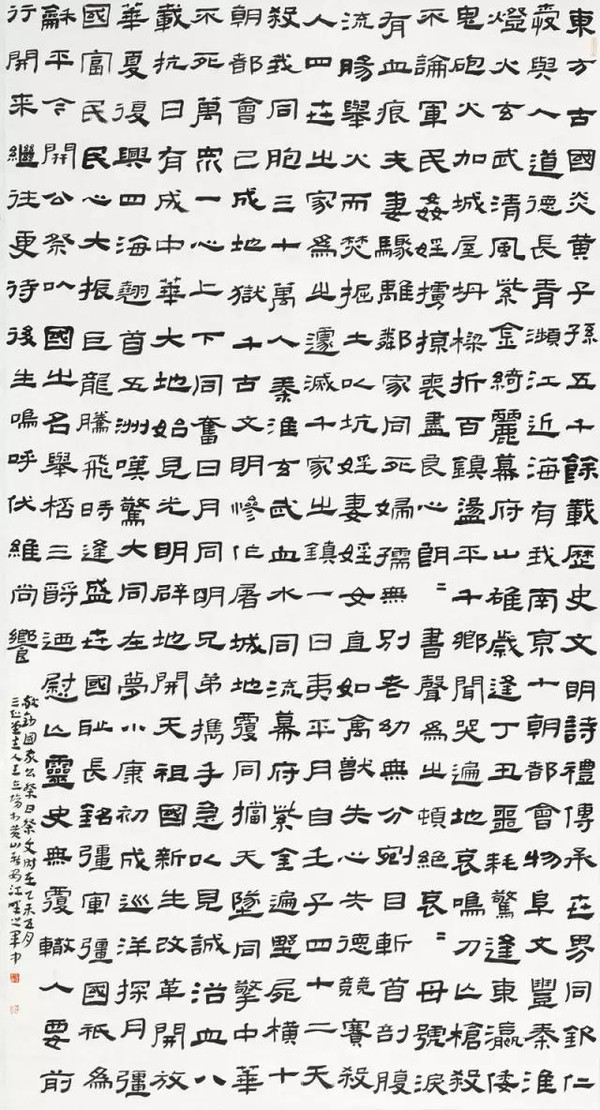 東方古國炎黃子孫五千餘載歷史文明詩禮傳承世界同欽仁
愛與人道德長青瀕江近海有我南京十朝都會物阜文豐秦淮
燈火玄武清風紫金綺麗幕府山雄歲逢丁丑噩耗驚逢東瀛倭
鬼砲火加城屋坍樑折百鎮盪平千鄉聞哭遍地哀鳴刀山槍殺
不論軍民姦婬擄掠喪盡良心朗〻書聲為之頓絕哀〻母號淚
有血痕夫妻驟離鄰家同死婦孺無別老幼無分剜目斬首剖腹
流腸舉火而焚掘土以坑婬妻婬女直如禽獸失心失德競賽殺
人四世之家為之遽滅千家之鎮一日夷平月自壬子四十二天
殺我同胞三十萬人秦淮玄武血水同流幕府紫金遍野屍橫十
朝都會已成地獄千古文明慘作屠城地覆同擋天墜同擎中華
不死萬眾一心上下同奮日月同明兄弟攜手急以見誠治血八
載抗日有成中華大地始見光明辟地開天祖國新生改革開放
華夏復興四海翹首五洲嘆驚大同在夢小康初成巡洋探月彊
國富民民心大振巨龍騰飛時逢盛世國恥長銘彊軍彊國祇為
龢平今開公祭以國之名舉桮三酹迺慰山靈史無覆轍人要前
行開来繼往更待後生嗚呼伏維尚饗
敬錄國家公祭日祭文時在乙未五月
堂主人王立於黃山新安江